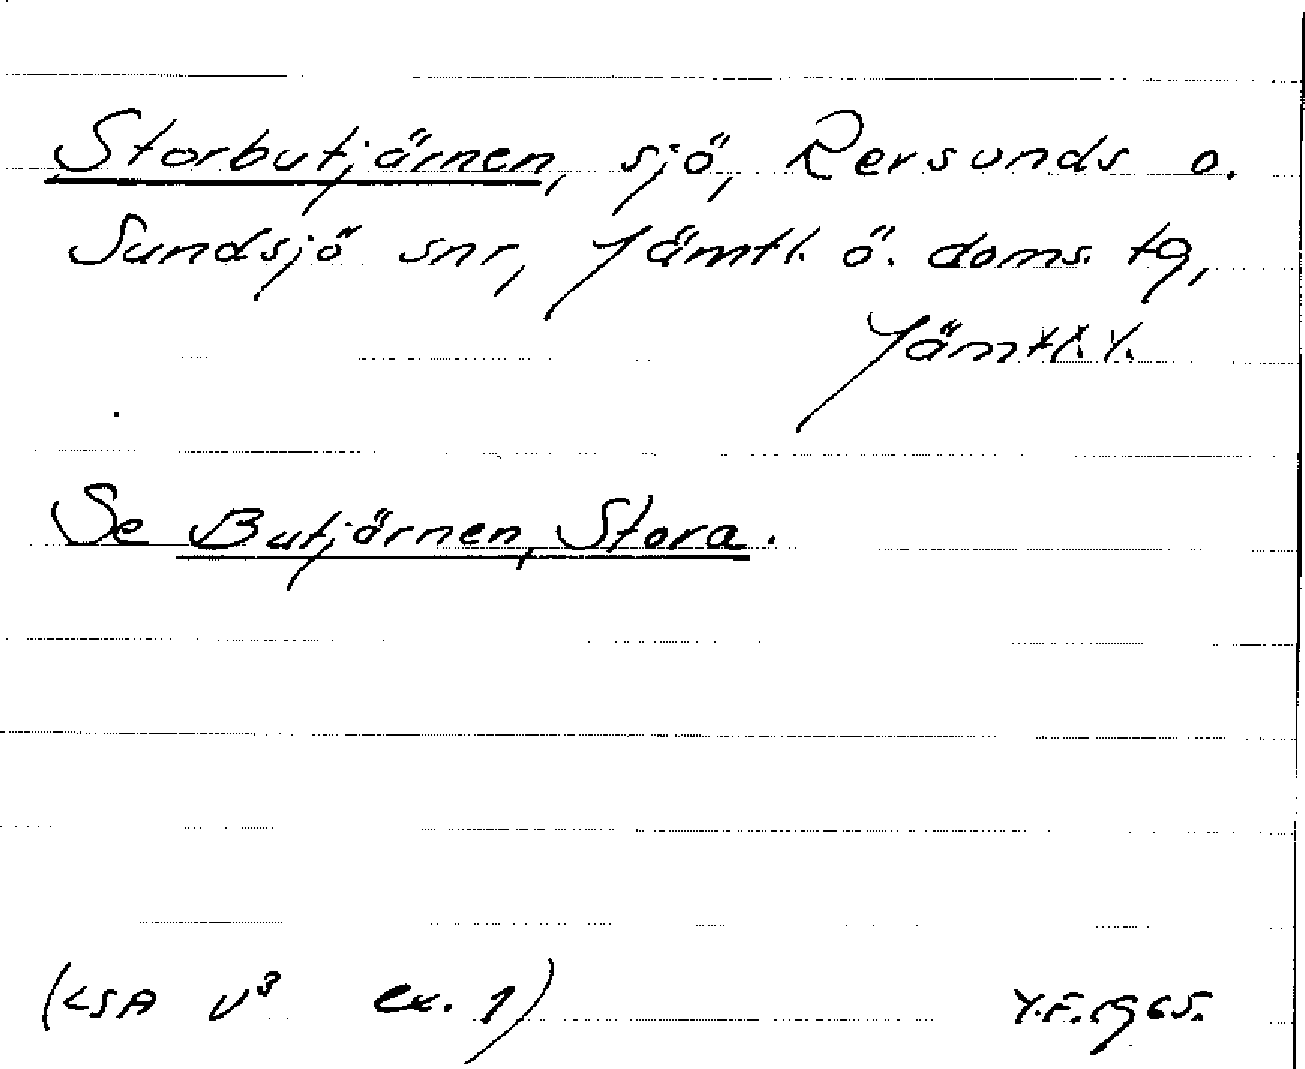 Storbutjärnen, sjö, Rersunds o.
Sundsjö snr, Jämtl. ö. doms. tg,
Jämtl. l.
Se Butjärnen, Stora.
(LSA V³ ex. 1) Y.F. 1965.